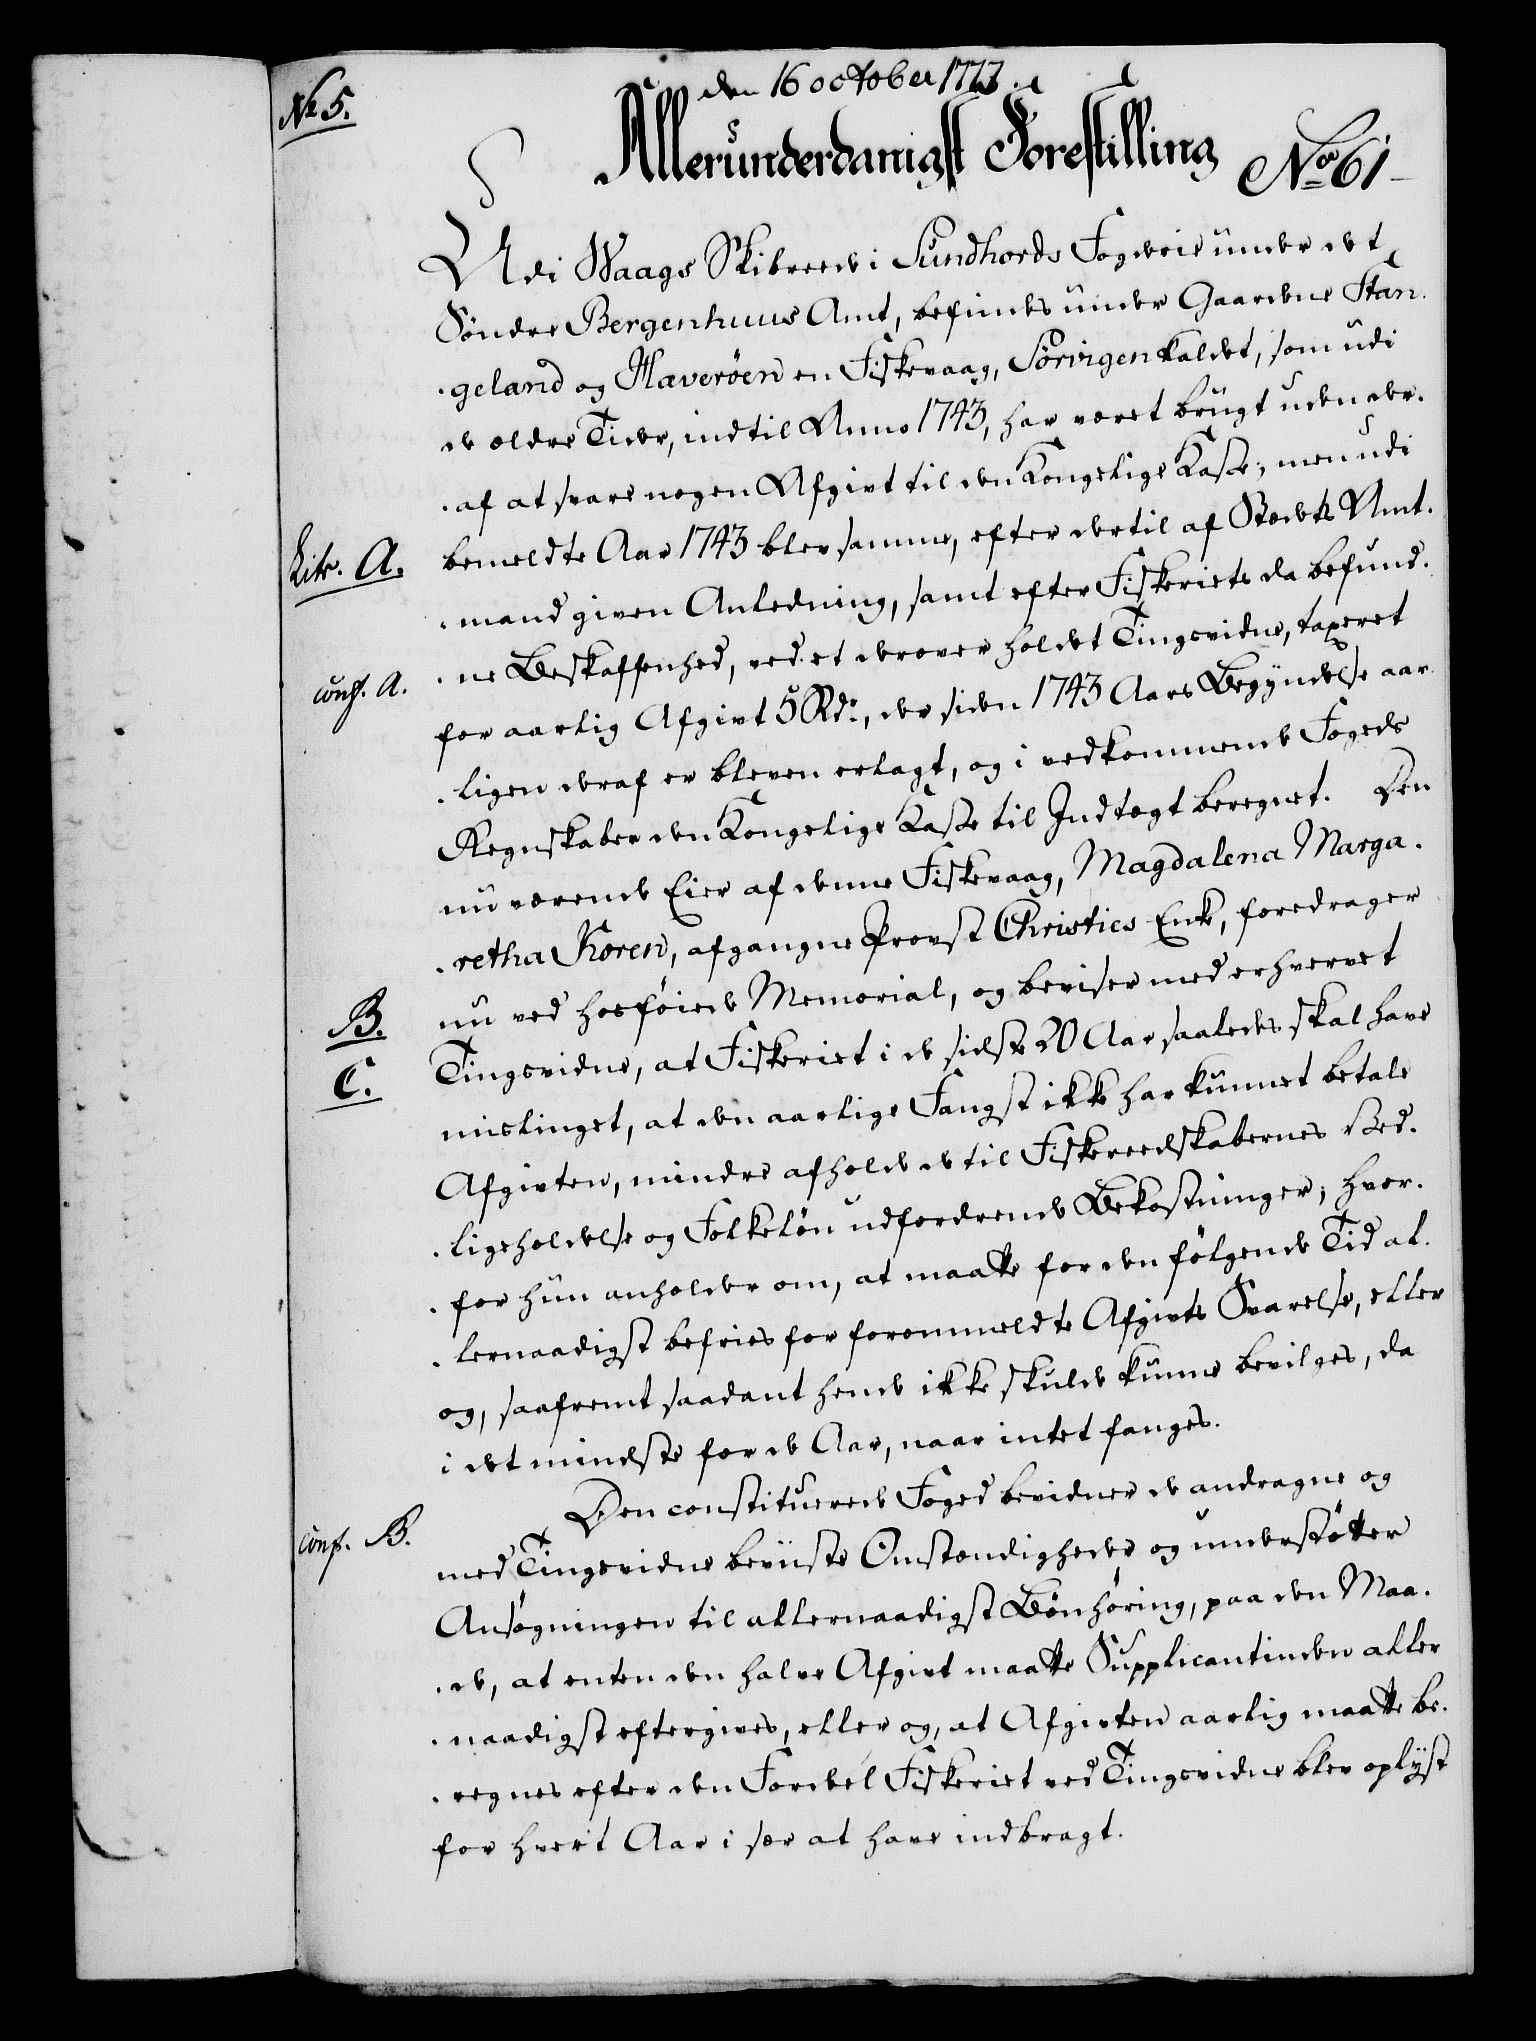 No 5.
den 16 october 1773.
Allerunderdanigst Forestilling No 61
Udi Waags Skibrede i Sundhords Fogderie under det
Söndre Bergenhuus Amt, befindes under Gaardene Stan-
-geland og Haveröen en Fiskevaag, Sörvigen kaldet, som udi
de ældre Tider, indtil Anno 1743, har været brugt uden der-
-af at svare nogen Afgivt til den Kongelige Kasse; men udi
Litr. A. bemeldte Aar 1743 blev samme, efter dertil af Stædets Amt-
-mand given Anledning, samt efter Fiskeriets da befund-
conf. A. -ne Beskaffenhed, ved et derover holdet Tingsvidne, taxeret
for aarlig Afgivt 5 Rd:, der siden 1743 Aars Begyndelse aar-
-ligen deraf er bleven erlagt, og i vedkommende Fogeds
Regnskaber den Kongelige Kasse til Indtægt beregnet. Den
nu værende Eier af denne Fiskevaag, Magdalena Marga-
-retha Koren, afgangne Provst Christies Enke, foredrager
B. nu ved hosföiede Memorial, og beviser med erhvervet
C. Tingsvidne, at Fiskeriet i de sidste 20 Aar saaledes skal have
mislinget, at den aarlige Fangst ikke har kunnet betale
Afgivten, mindre afholde de til Fiskereedskabernes Ved-
-ligeholdelse og Folkelön udfordrende Bekostninger; hvor-
-for hun anholder om, at maatte for den fölgende Tid al-
-lernaadigst befries for forommeldte Afgivts Svarelse, eller
og, saafremt saadant hende ikke skulde kunne bevilges, da
i det mindste for de Aar, naar intet fanges.
Den constituerede Foged bevidner de andragne og
conf. B. med Tingsvidne beviiste Omstændigheder og understötter
Ansögningen til allernaadigst Bönhöring, paa den Maa-
-de, at enten den halve Afgivt maatte Supplicantinden aller
-naadigst eftergives, eller og, at Afgivten aarlig maatte be-
-regnes efter den Fordeel Fiskeriet ved Tingsvidne blev oplyst
for hvert Aar i sær at have indbragt.